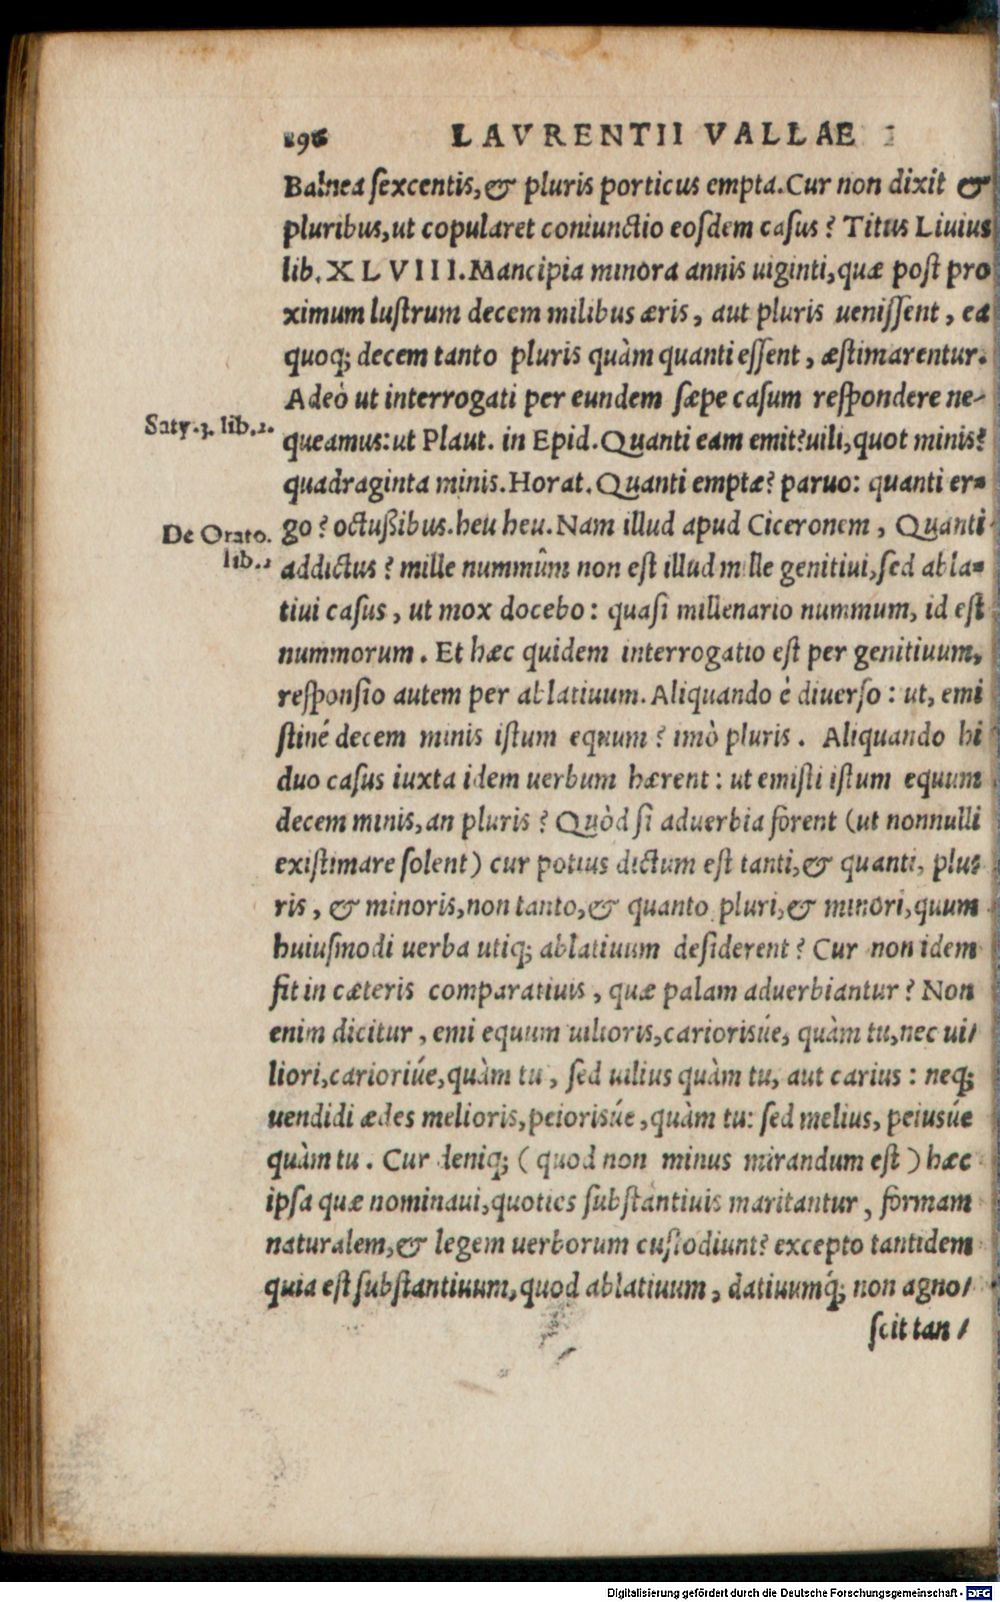 198 LAVRENTII VALLAE
Balnea sexcentis, & pluris porticus empta. Cur non dixit &
pluribus, ut copularet coniunctio eosdem casus? Titus Liuius
lib. XLVIII. Mancipia minora annis uiginti, quæ post pro
ximum lustrum decem milibus æris, aut pluris uenissent, ea
quoq; decem tanto pluris quàm quanti essent, æstimarentur.
Adeò ut interrogati per eundem sæpe casum respondere ne-
Saty. 3. lib. 2.
queamus: ut Plaut. in Epid. Quanti eam emit? uili, quot minis?
quadraginta minis. Horat. Quanti emptæ? paruo: quanti er-
De Orato.
lib. 2
go? octußibus. heu heu. Nam illud apud Ciceronem, Quanti
addictus? mille nummûm non est illud mille genitiui, sed abla-
tiui casus, ut mox docebo: quasi millenario nummum, id est
nummorum. Et hæc quidem interrogatio est per genitiuum,
responsio autem per ablatiuum. Aliquando è diuerso: ut, emi
stiné decem minis istum equum? imò pluris. Aliquando hi
duo casus iuxta idem uerbum hærent: ut emisti istum equum
decem minis, an pluris? Quòd si aduerbia forent (ut nonnulli
existimare solent) cur potius dictum est tanti, & quanti, plu-
ris, & minoris, non tanto, & quanto pluri, & minori, quum
huiusmodi uerba utiq; ablatiuum desiderent? Cur non idem
fit in cæteris comparatiuis, quæ palam aduerbiantur? Non
enim dicitur, emi equum uilioris, cariorisúe, quàm tu, nec ui/
liori, carioriúe, quàm tu, sed uilius quàm tu, aut carius: neq;
uendidi ædes melioris, peiorisúe, quàm tu: sed melius, peiusúe
quàm tu. Cur deniq; (quod non minus mirandum est) hæc
ipsa quæ nominaui, quoties substantiuis maritantur, formam
naturalem, & legem uerborum custodiunt? excepto tantidem
quia est substantiuum, quod ablatiuum, datiuumq́; non agno/
scit tan /
Digitalisierung gefördert durch die Deutsche Forschungsgemeinschaft - DFG